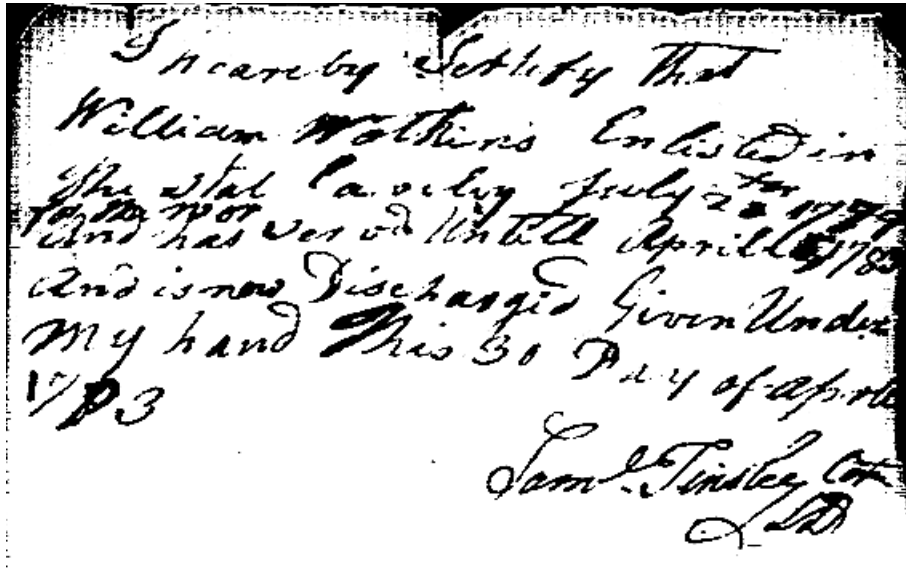 I heareby Settify That
William Wotkins Enlisted in
The Stat Cavelry July 2 1779
for the wor
And has Served Untill Aprill 1783
And is now Discharged Given Under
My hand This 30 Day of Aprile
1783
Saml. Tinsley